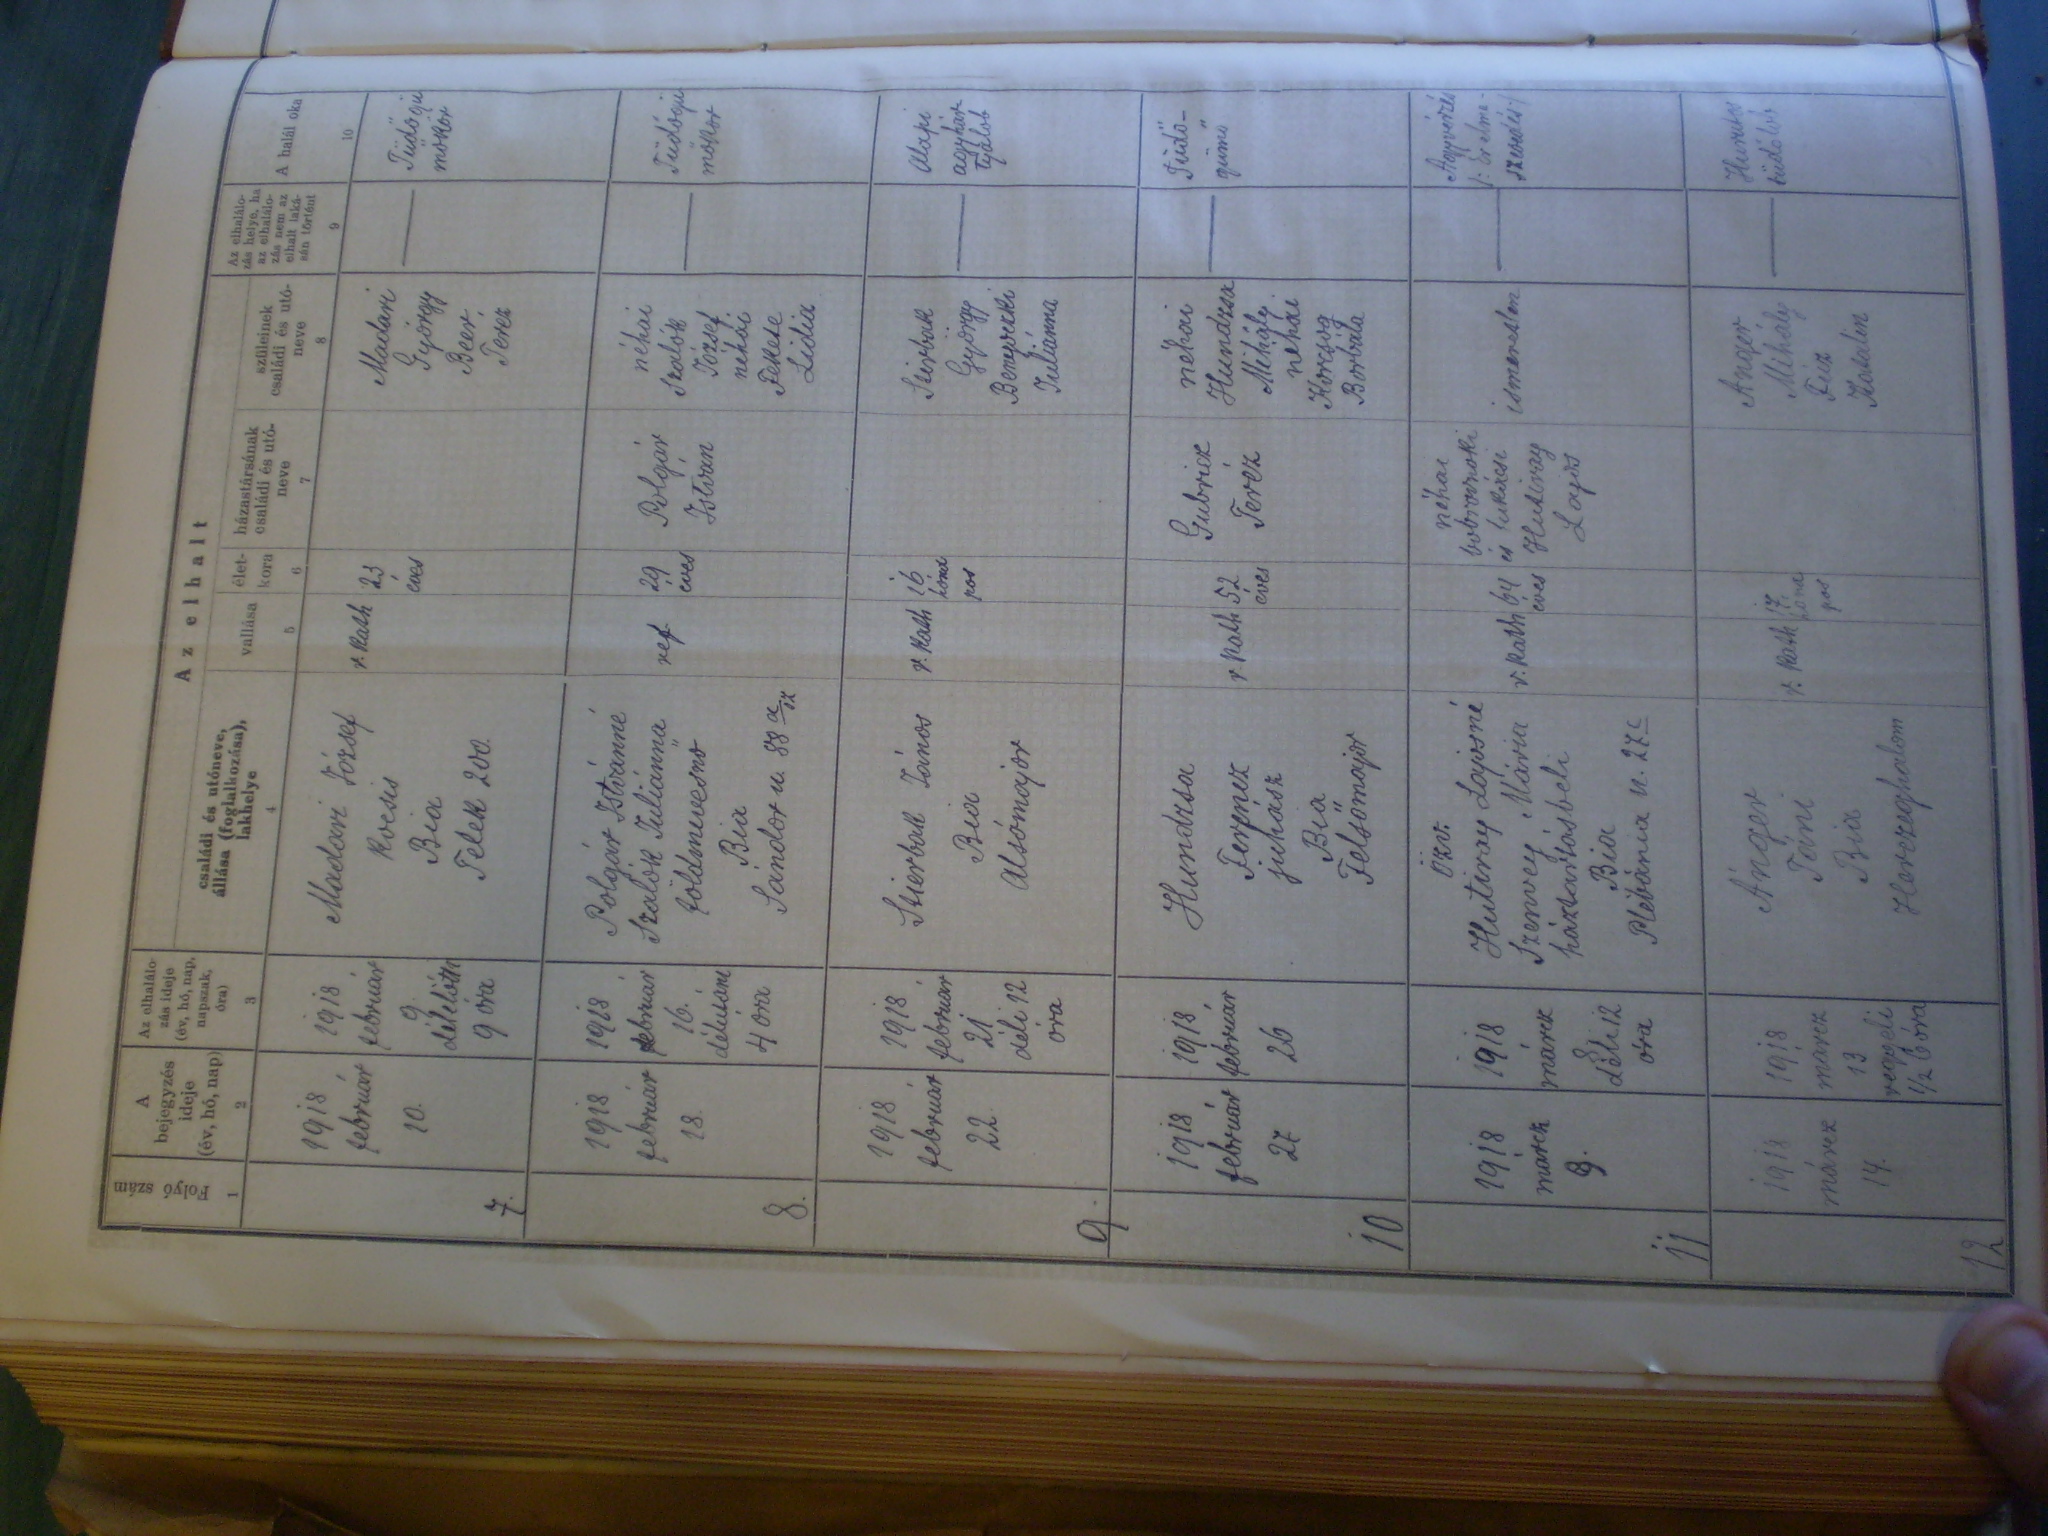 Az elhalt
Folyó szám
A bejegyzés ideje (év, hó, nap)
Az elhalálo-
zás ideje
(év, hó, nap,
napszak,
óra)
családi és utóneve,
állása (foglalkozása),
lakhelye
vallása
élet-
kora
házastársának
családi és utó-
neve
szüleinek
családi és utó-
neve
Az elhalálo-
zás helye, ha
az elhalálo-
zás nem az
elhalt laká-
sán történt
A halál oka
1
2
3
4
5
6
7
8
9
10
7.
1918
február
10.
1918
február
9.
délelőtti
9 óra
Madari József
kocsis
Bia
Telek 200.
r. kath
23
éves
Madari
György
Beer
Teréz
Tüdőgü
mőkór
8.
1918
február
18.
1918
február
16.
délután
4 óra
Polgár Istvánné
Szalók Juliánna
földmives nő
Bia
Sándor u.
ref.
29
éves
Polgár
István
néhai
Szalók
József
néhai
Fekete
Lidia
Tüdőgü
mőkór
9.
1918
február
22.
1918
február
21
déli 12
óra
Stierbák János
Bia
Alsómajor
r. kath
16
hóna
pos
Stierbák
György
Juliánna
Alapi
agyhár
tyalob
10
1918
február
27
1918
február
26
Hundzsa
Ferencz
juhász
Bia
Felsőmajor
r. kath
52
éves
Gubricz
Teréz
néhai
Hundzsa
Mihály
néhai
Korcsog
Borbála
Tüdő-
gümő
11
1918
márcz
9.
1918
márcz
8
déli 12
óra
Özv.
Hutiray Lajosné
Szenvey Mária
háztartásbeli
Bia
Plébánia u. 27.
r. kath
64
éves
néhai
és lukácsi
Hutiray
Lajos
ismeretlen
Agyvérzés
12
1918
márcz
14.
1918
márcz
13
reggeli
1/2 6 óra
Ánger
Bia
Herczeghalom
r. kath
17
hóna
pos
Ánger
Mihály
Katalin
Hurutos
tüdőlob